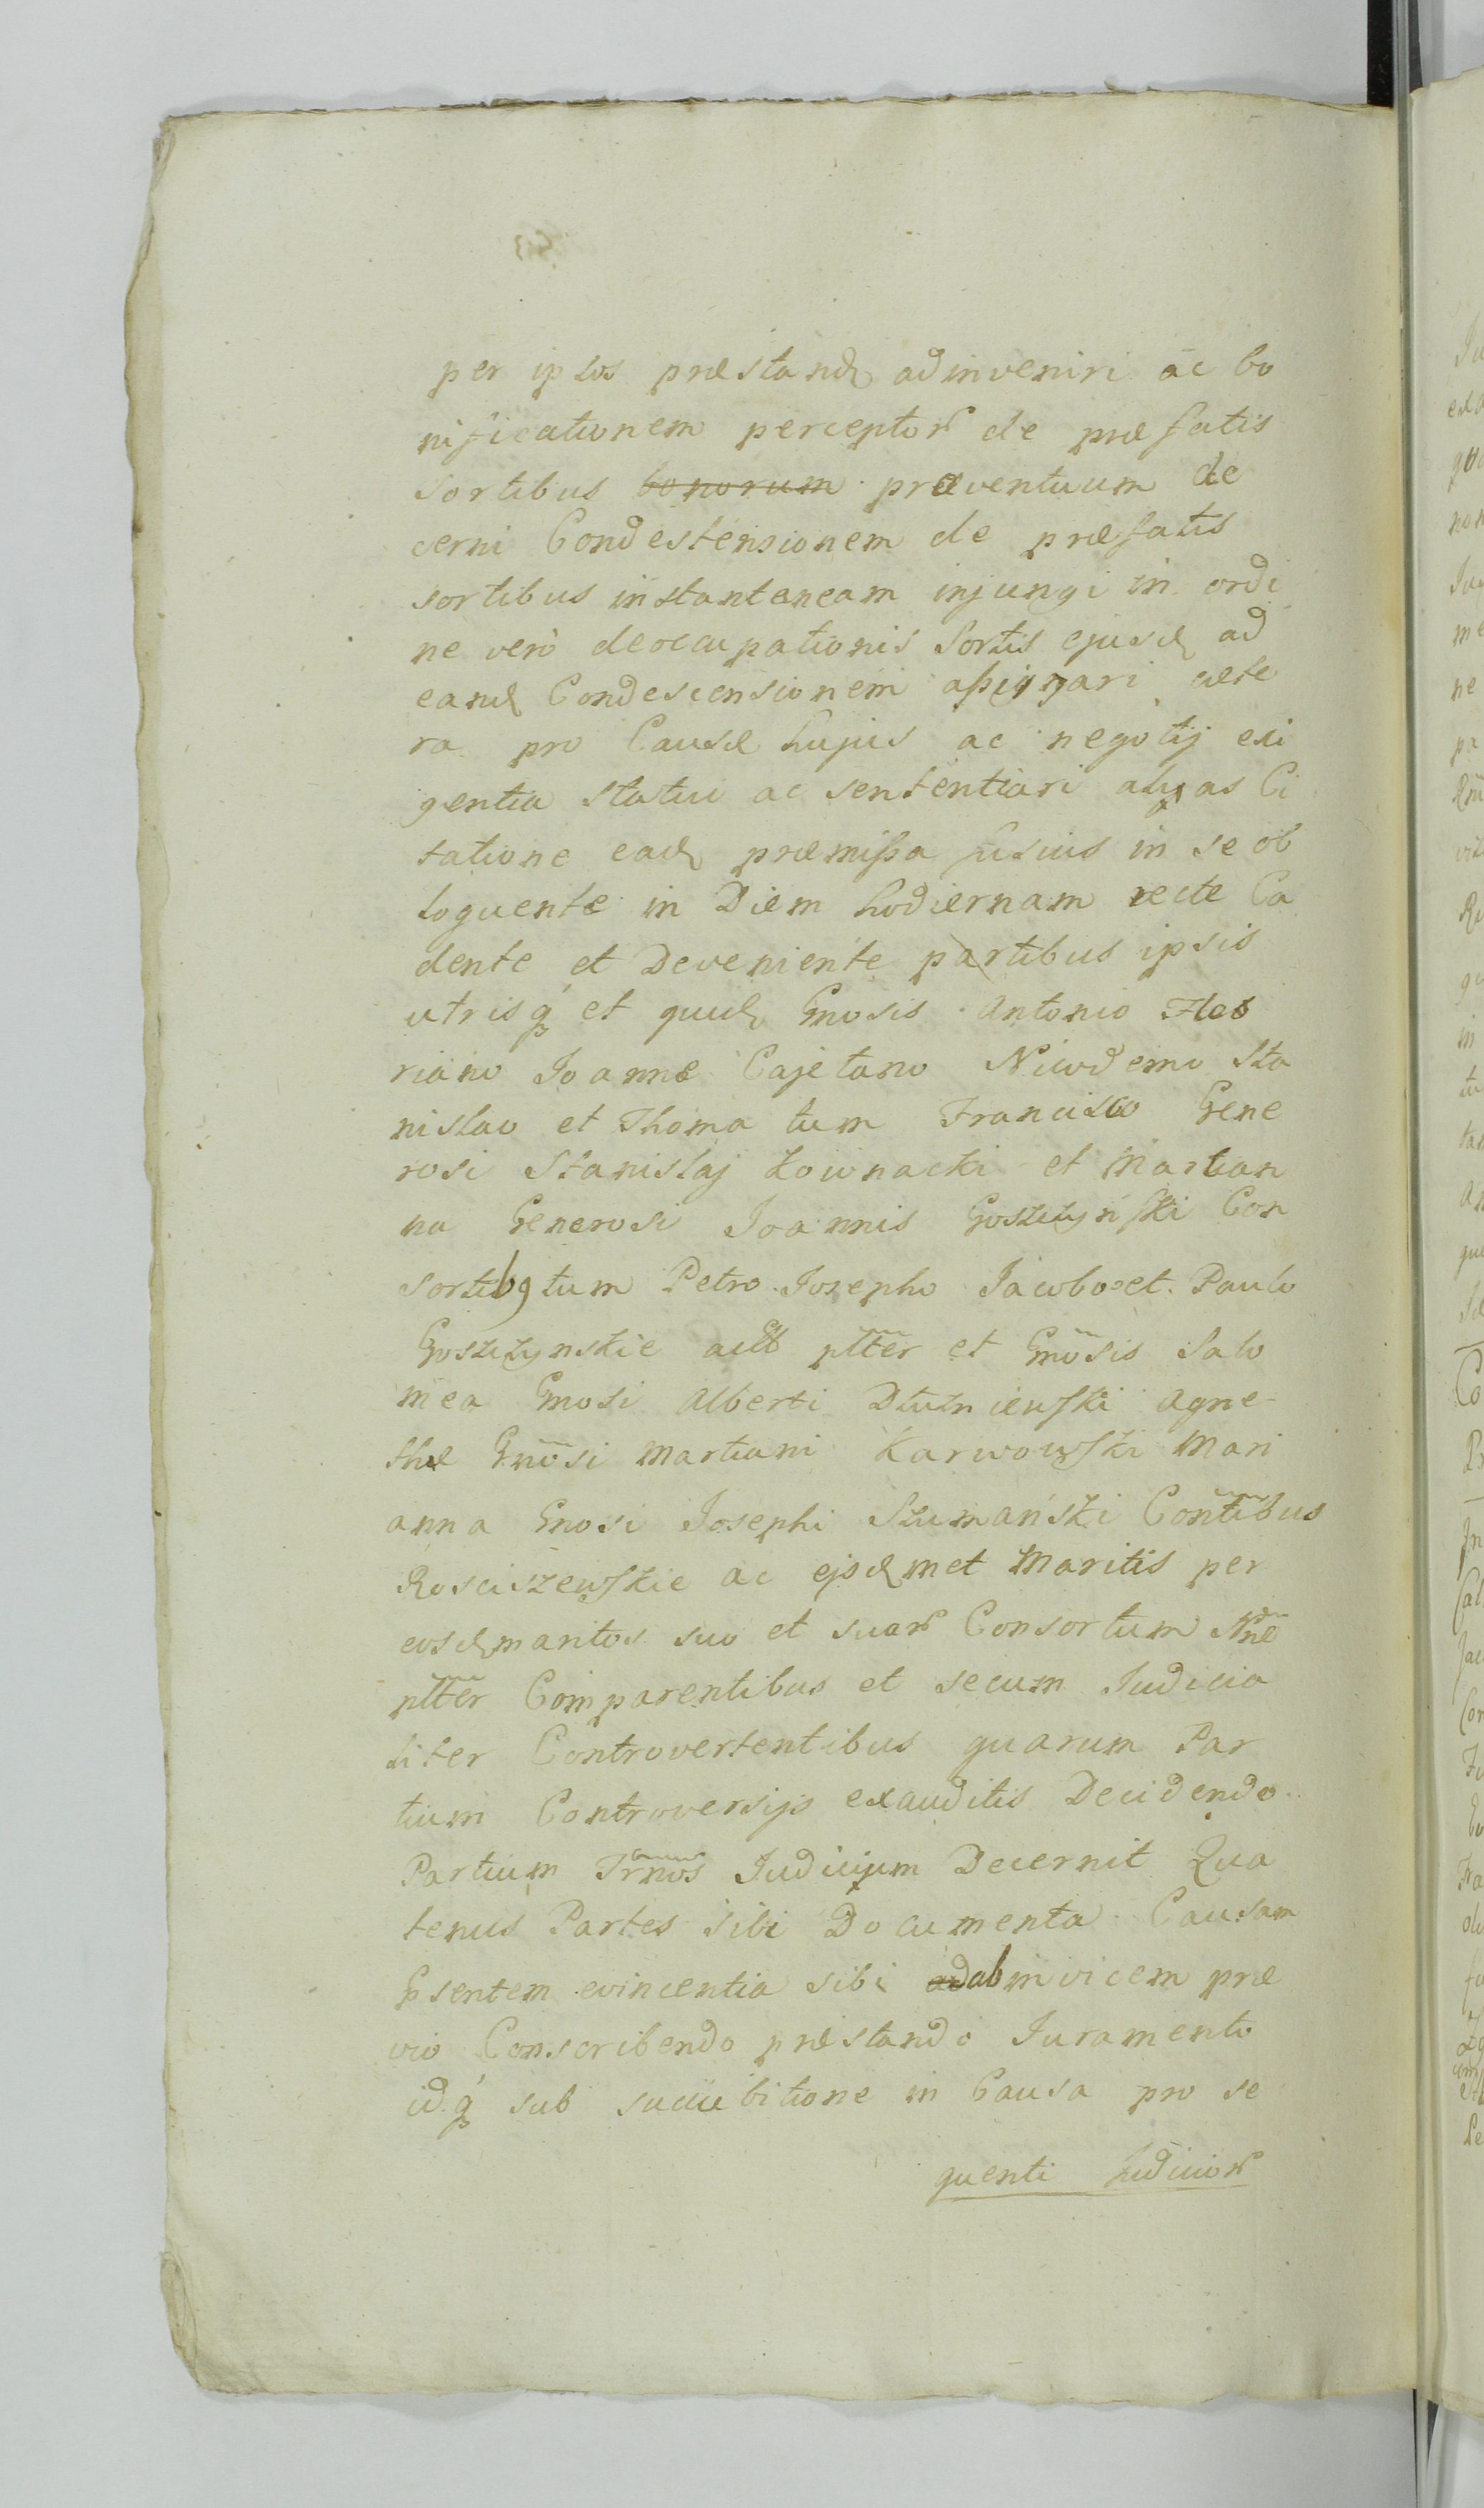 per ipsos præstand adinveniri ac bo
nificationem perceptor de præfatis
sortibus bonorum præventuum de
cerni Condestensionem de præfatis
sortibus instantaneam injungi in ordi
ne verò deoccupationis Sortis ejusd ad
eand Condescensionem assignari cæte
ra pro Causæ hujus ac negotij exi
gentia statui ac sententiari alias Ci
tatione ead præmissa fusius in se ob
loquente in Diem hodiernam recte Ca
dente et Deveniente partibus ipsis
utrisq et quid Gnosis Antonio Flo
riano Joanne Cajetano Nicodemo Sta
nislao et Thoma tum Francisco Gene
rosi Stanislaj Łownacki et Martian
na Generosi Joannis Gostzynski Con
sortib9 tum Petro Josepho Jacobo et Paulo
Gostzynskie actt pltter et Gnosis Salo
mea Gnosi Alberti Dłużniewski Agne-
thæ Gnosi Martiani Karwowski Mari
anna Gnosi Josephi Szumański Contibus
Rosciszewskie ac ejsdmet Maritis per
eosdmaritos suo et suar Consortum Nne
pltter Comparentibus et secum Judicia
liter Controvertentibus quarum Par
tium Controversijs exauditis Decidendo
Partium Trnos Judicium Decernit Qua
tenus Partes sibi Documenta Causam
psentem evincentia sibi ad ab invicem præ
vio Conscribendo præstando Juramento
idq sub succubitione in Causa pro se
quenti Judicior